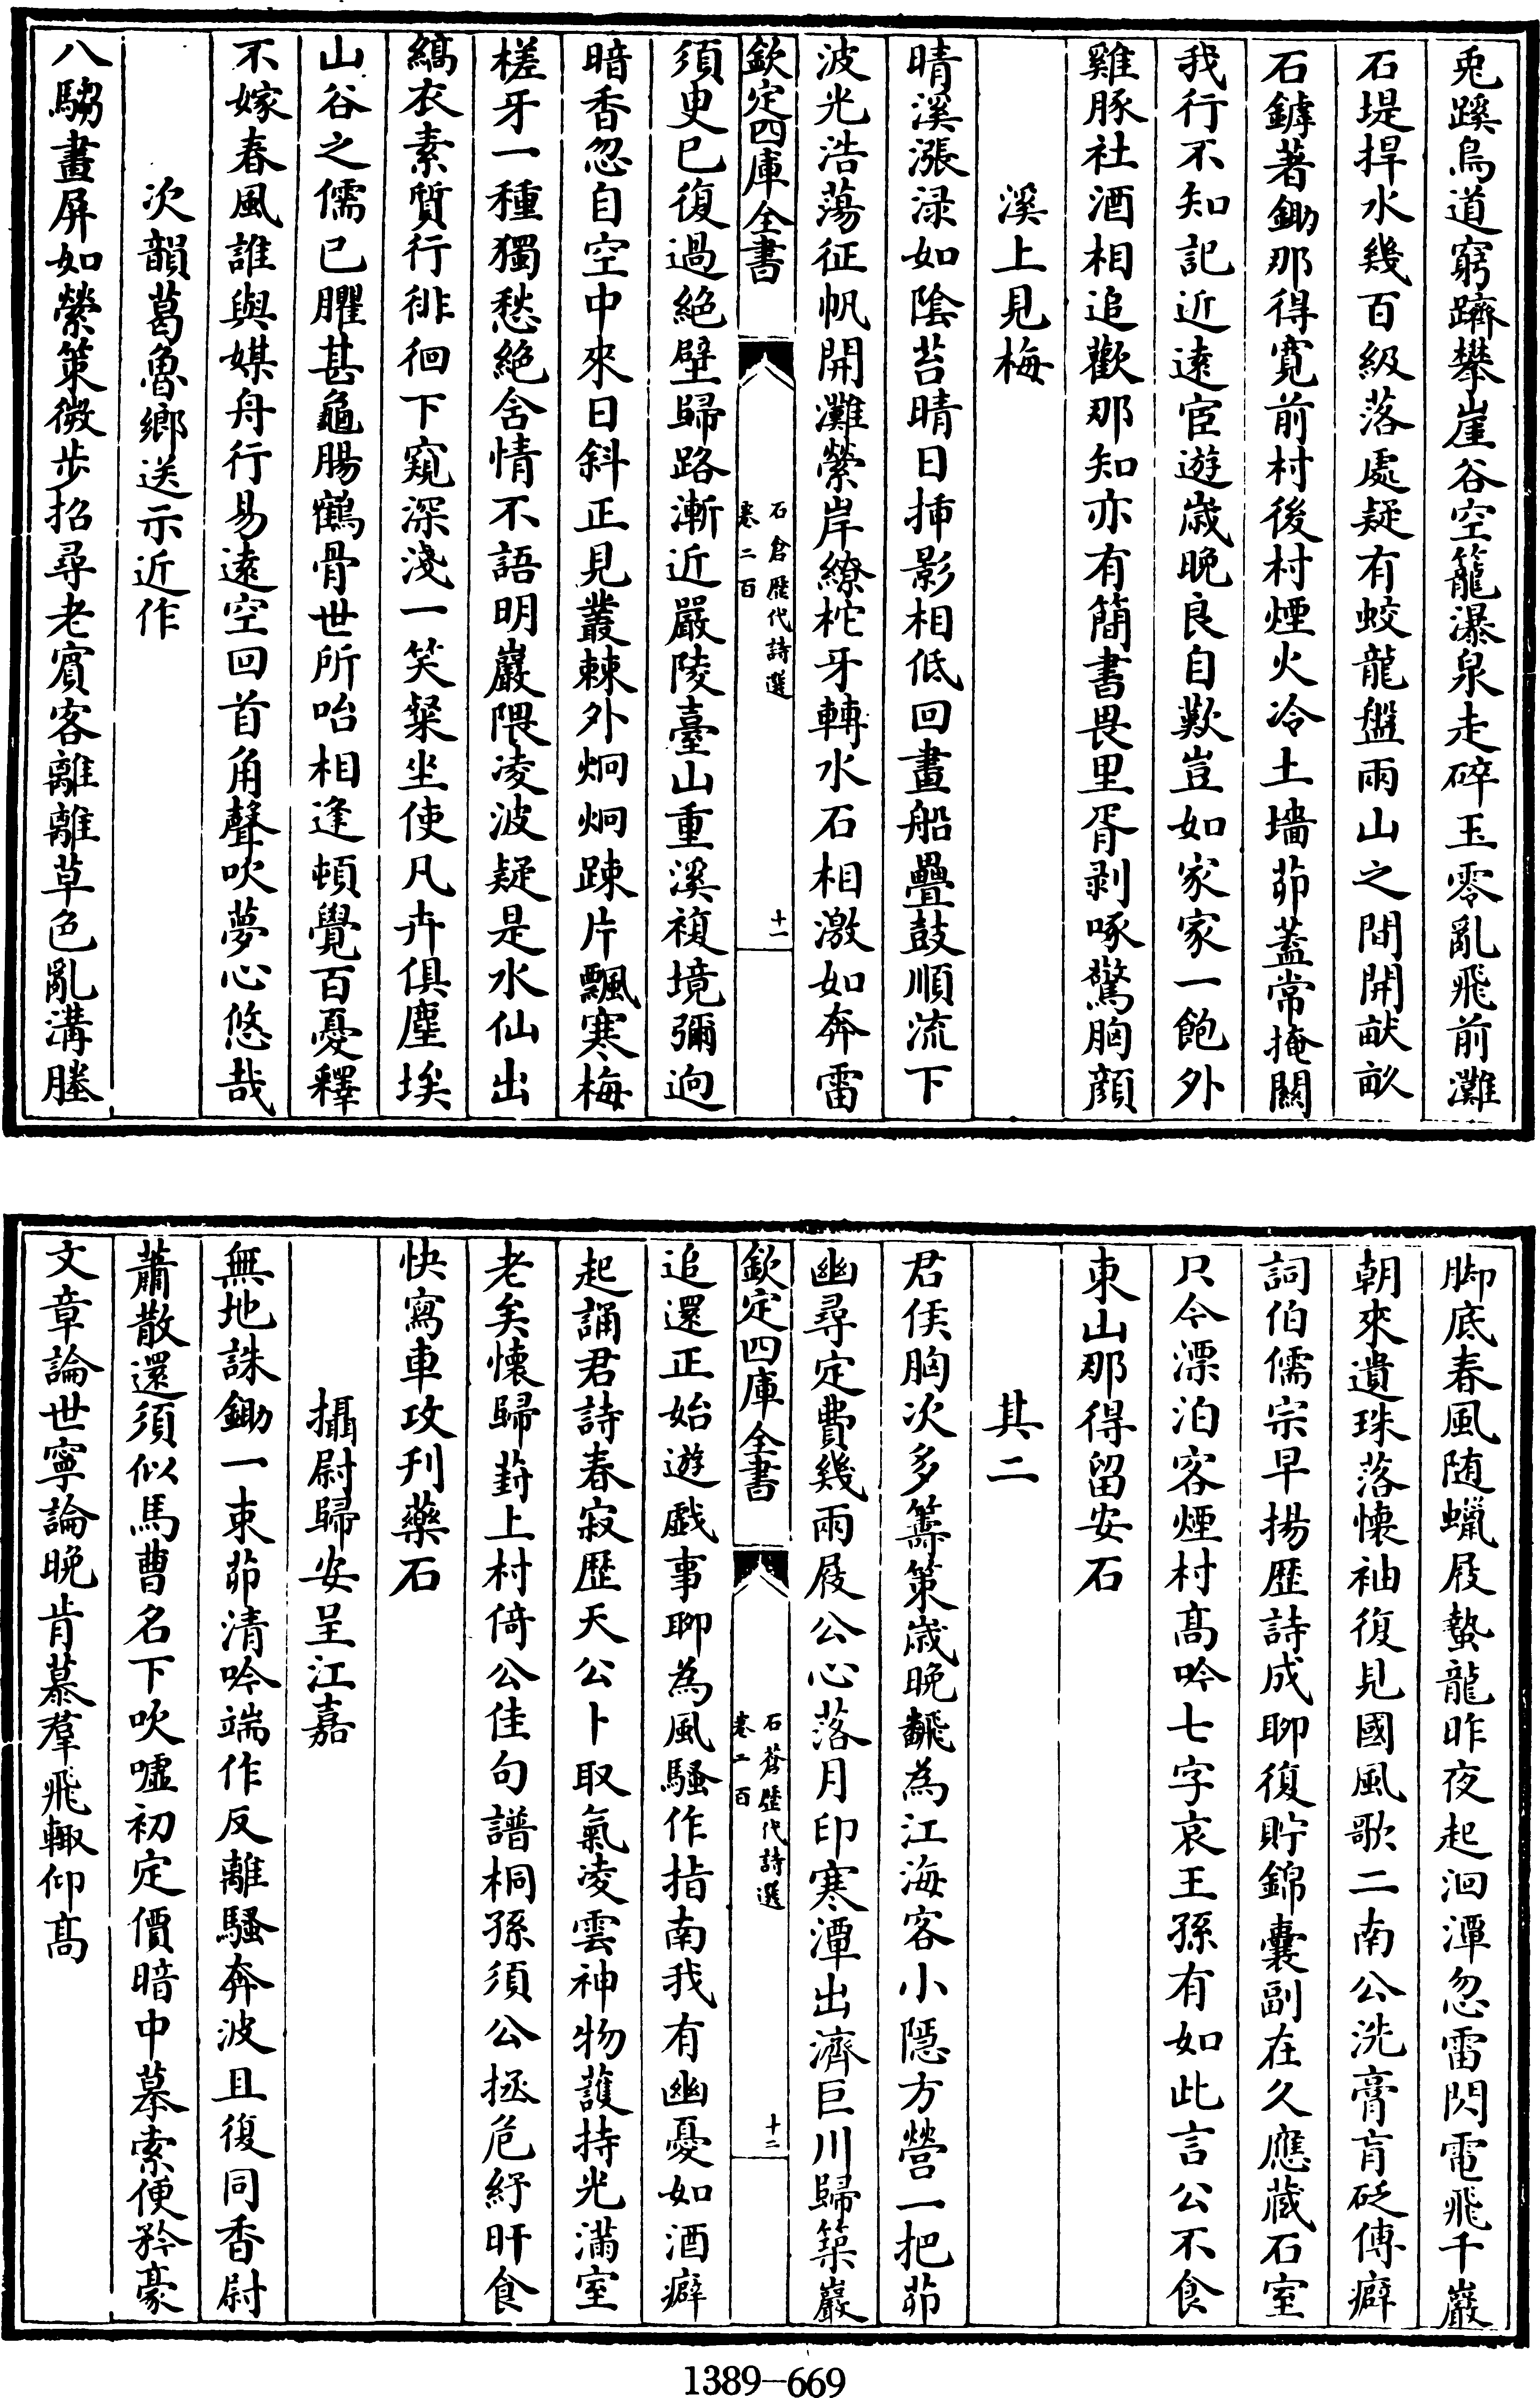 兎蹊鳥道窮躋攀崖谷空籠瀑泉走碎玉零亂飛前灘
石堤捍水幾百級落處疑有蛟龍盤兩山之間開畎畝
石鏬著鋤那得寬前村後村煙火冷土墻茆葢常掩闗
我行不知記近逺宦遊歳晩良自歎豈如家家一飽外
雞豚社酒相追歡那知亦有簡書畏里胥剥啄驚胸顔
溪上見梅
晴溪漲渌如陰苔晴日揷影相低回畫船疊鼓順流下
波光浩蕩征帆開灘縈岸繚柁牙轉水石相激如奔雷
欽定四庫全書
石倉歴代詩選
卷二百
十一
須臾已復過絶壁歸路漸近嚴陵臺山重溪複境彌逈
暗香忽自空中來日斜正見叢棘外炯炯踈片飄寒梅
槎牙一種獨愁絶含情不語明巖隈凌波疑是水仙出
縞衣素質行徘徊下窺深淺一笑粲坐使凡卉俱塵埃
山谷之儒已臞甚龜腸鶴骨世所咍相逢頓覺百憂釋
不嫁春風誰與媒舟行易逺空回首角聲吹夢心悠哉
次韻葛魯鄉送示近作
八騶畫屏如縈策微步招尋老賓客離離草色亂溝塍
脚底春風随蠟屐蟄龍昨夜起洄潭忽雷閃電飛千巖
朝來遺珠落懐袖復見國風歌二南公洗膏肓砭傳癖
詞伯儒宗早揚歴詩成聊復貯錦囊副在久應藏石室
只今漂泊客煙村髙吟七字哀王孫有如此言公不食
東山那得留安石
其二
君侯胸次多籌策歳晩飜為江海客小隠方營一把茆
幽尋定費幾兩屐公心落月印寒潭出濟巨川歸築巖
欽定四庫全書
石蒼歴代詩選
卷二百
十二
追還正始遊戯事聊為風騷作指南我有幽憂如酒癖
起誦君詩春寂歴天公卜取氣凌雲神物䕶持光滿室
老矣懐歸葑上村倚公佳句譜桐孫須公拯危紓旰食
快寫車攻刋藥石
攝尉歸安呈江嘉
無地誅鋤一束茆清吟端作反離騷奔波且復同香尉
蕭散還須似馬曹名下吹噓初定價暗中摹索便矜豪
文章論世寧論晩肯慕羣飛輙仰髙
1389-669